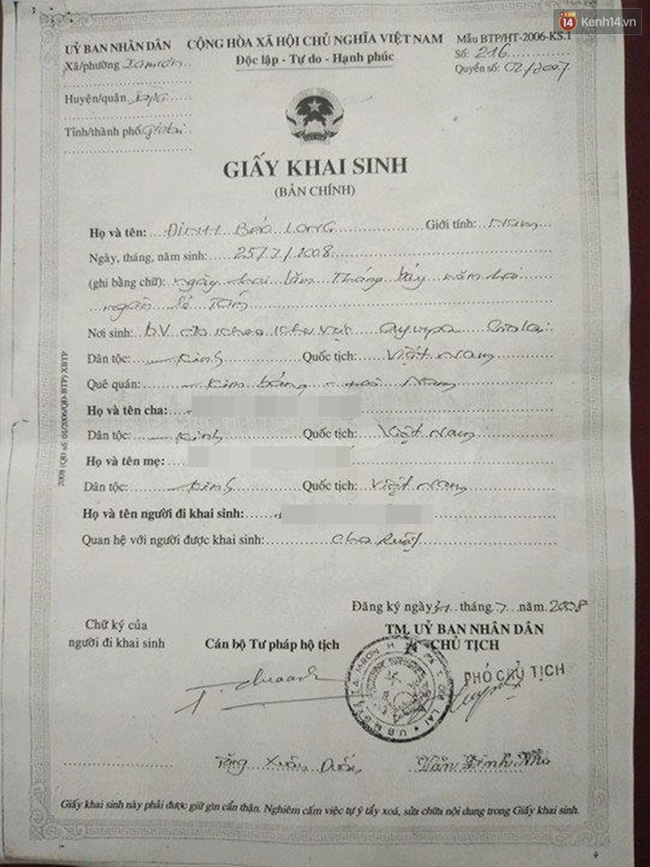 14 Kenh14.vn
ỦY BAN NHÂN DÂN CỘNG HÒA XÃ HỘI CHỦ NGHĨA VIỆT NAM Mẫu BTP/HT-2006-KS.1
Xã/phường Độc lập - Tự do - Hạnh phúc Số: 216
Quyển số: 02/2007
Huyện/quận
Tỉnh/thành phố
GIẤY KHAI SINH
(BẢN CHÍNH)
Họ và tên: ĐINH BẢO LONG Giới tính: Nam
Ngày, tháng, năm sinh: 25/7/2008
(ghi bằng chữ): ngày hai lăm tháng bảy năm hai
ngàn lẻ tám
Nơi sinh: BV khu vực Ayunpa Gia lai
Dân tộc: Kinh Quốc tịch: Việt Nam
Quê quán: Kim bảng - Hà Nam
Họ và tên cha:
Dân tộc: Kinh Quốc tịch: Việt Nam
Họ và tên mẹ:
Dân tộc: Kinh Quốc tịch: Việt Nam
Họ và tên người đi khai sinh:
Quan hệ với người được khai sinh: Cha ruột
Đăng ký ngày 31 tháng 7 năm 2008
Chữ ký của Cán bộ Tư pháp hộ tịch TM. UỶ BAN NHÂN DÂN
người đi khai sinh CHỦ TỊCH
PHÓ CHỦ TỊCH
Xuân
Giấy khai sinh này phải được giữ gìn cẩn thận. Nghiêm cấm việc tự ý tẩy xoá, sửa chữa nội dung trong Giấy khai sinh.